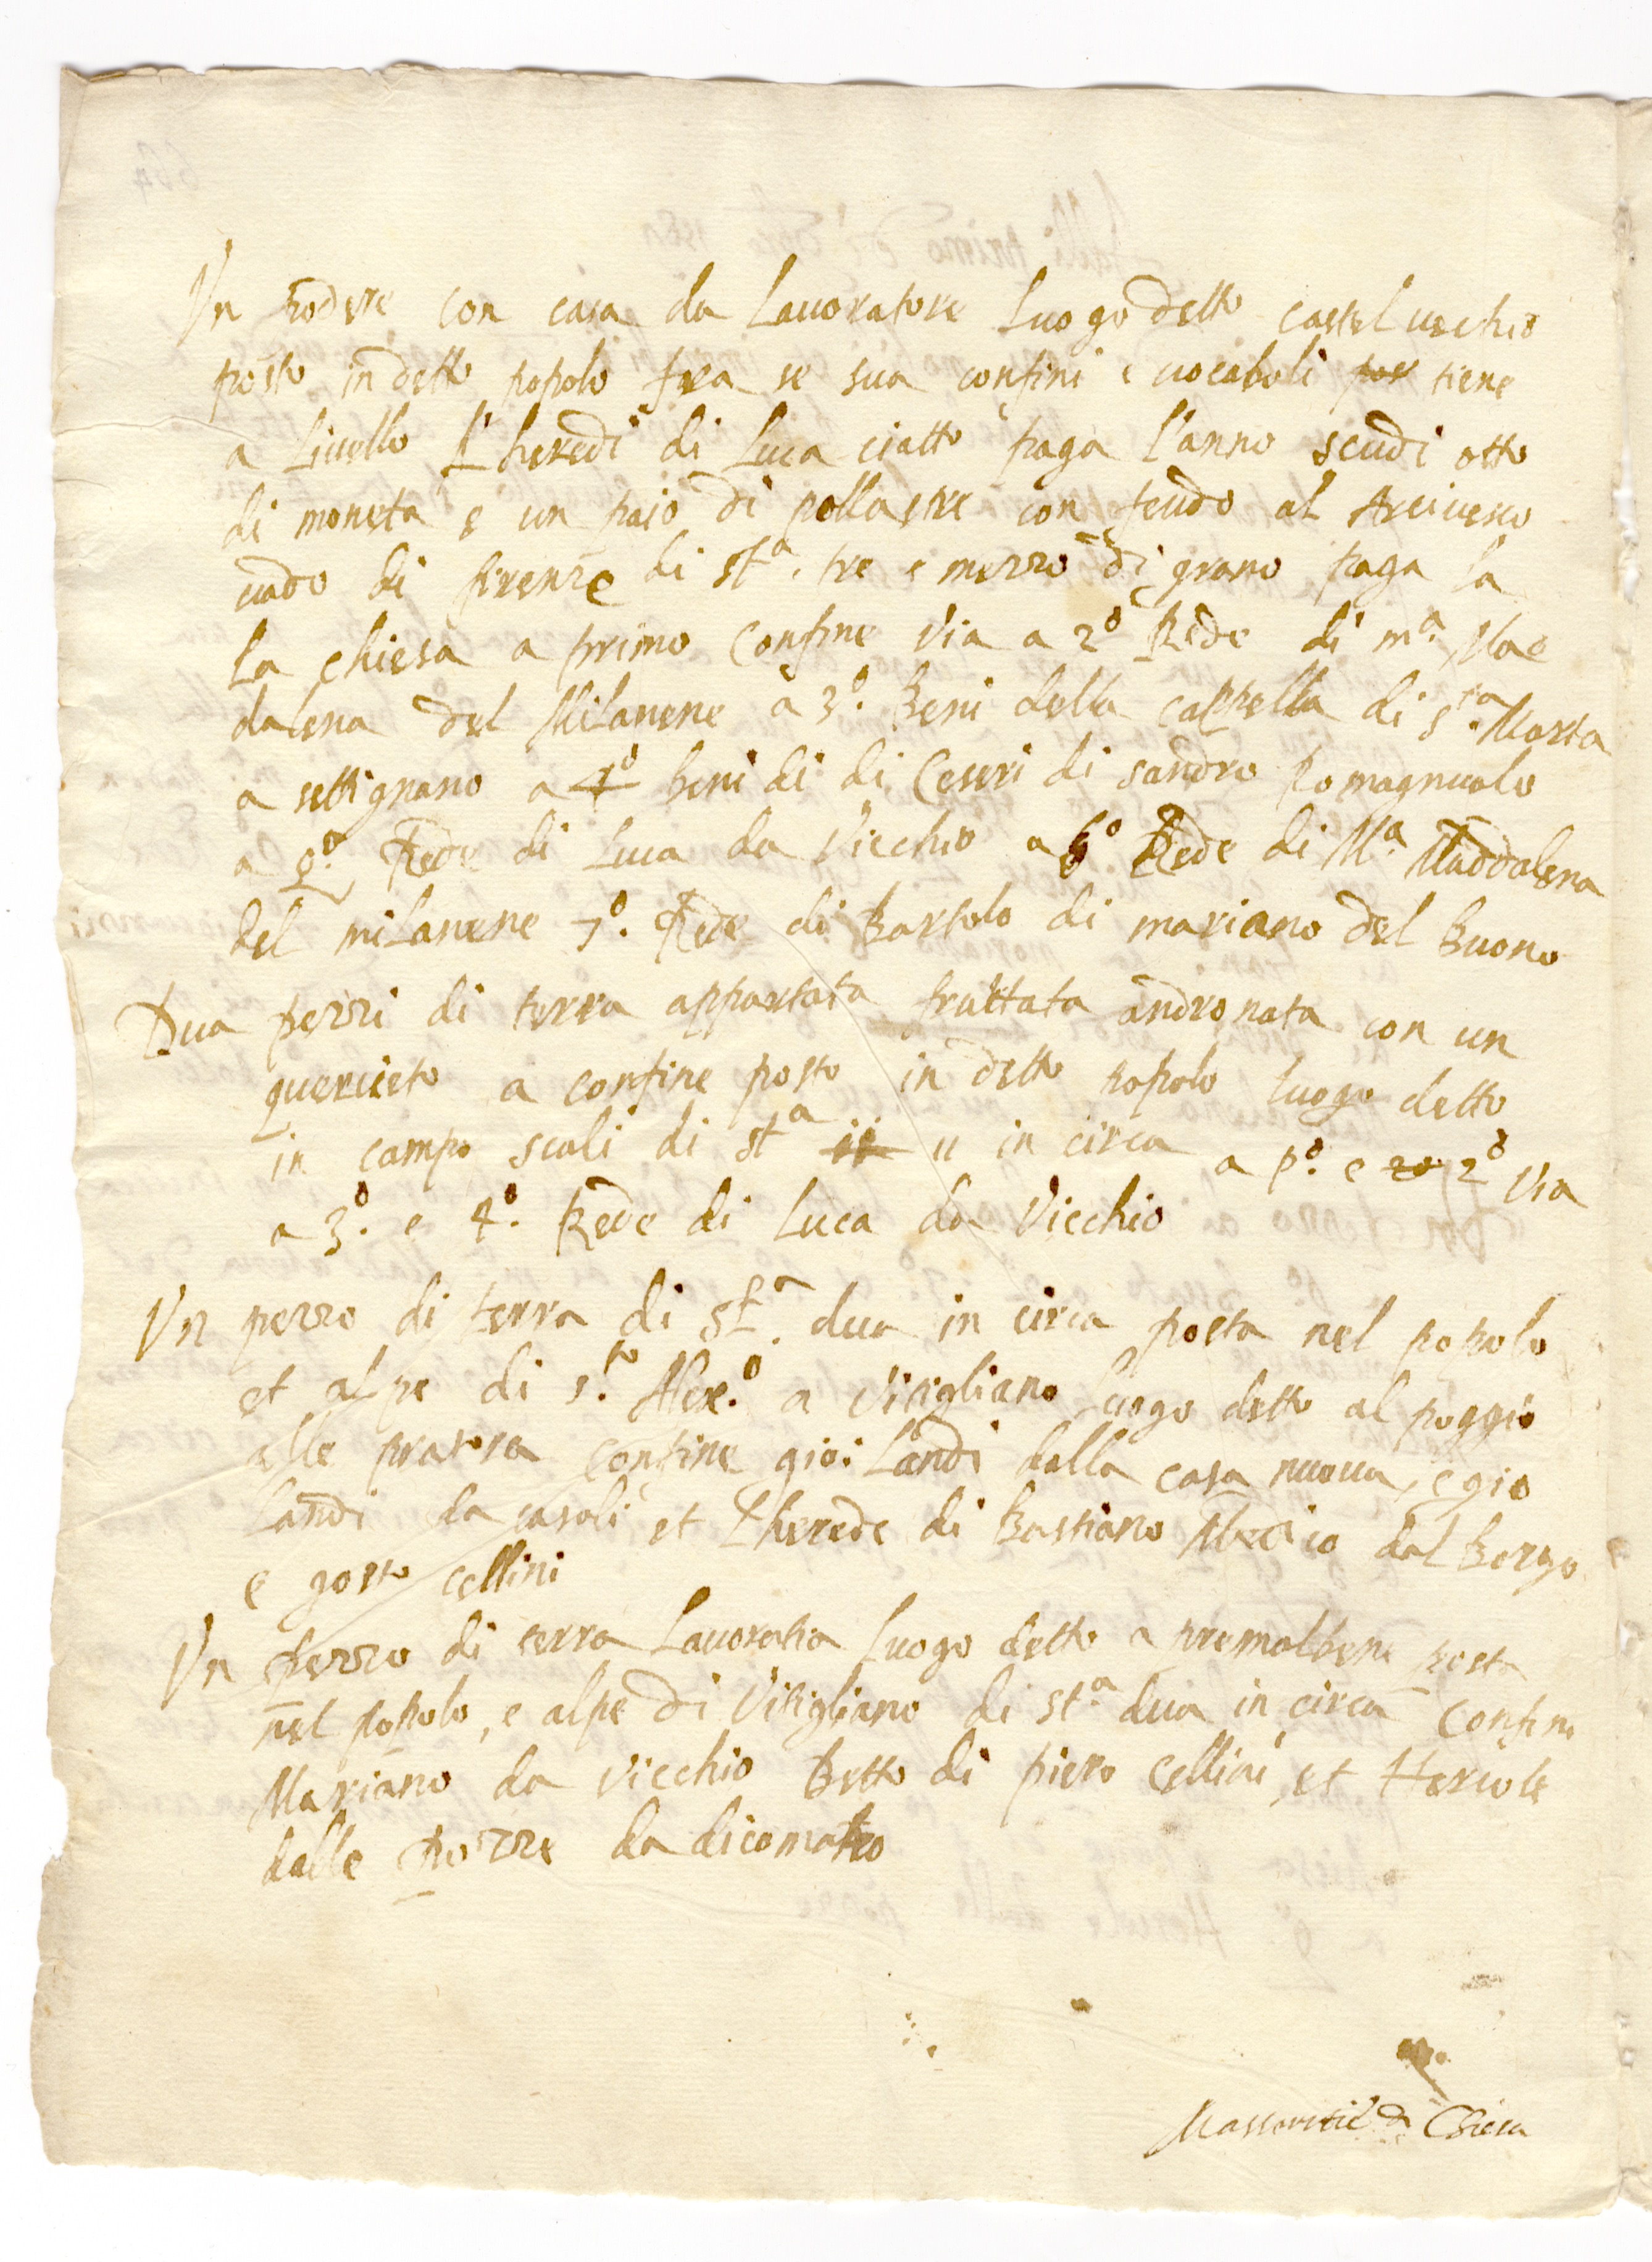 Un podere con casa da Lavoratore Luogo detto castel vechio
posto in detto popolo fra se sua confini e vocaboli por tiene
a Livello L'heredi di Luca ciatto paga l'anno scudi otto
di moneta e un paio di pollastre con feudo al Arcivesco
vado di firenze di st.a tre e mezzo di grano paga la
La chiesa a primo Confine via a 2.o Rede di m.a Mae
dalena del Milanene a 3.o Beni della cappella di s.ta Marta
a settignano a 4.o beni di di Ceseri di sandro Romagnuolo
a 5.o Rede di Luca da Vicchio a 6.o Rede di M.a Maddalena
del milanene 7.o Rede di Bartolo di mariano del Buono
Dua pezzi di terra appartata fruttata andronata con un
querceto a confine posto in detto popolo luogo detto
in campo scoli di st.a ii 11 in circa a p.o e 20 2.o via
a 3.o e 4.o Rede di Luca da Vicchio
Un pezzo di terra di St.a dua in circa posta nel popolo
et alpe di s.to Alex.o a Vitigliano luogo detto al poggio
alle pratora confine gio: Landi dalla casa nuova, e gio
Landi da casoli et L'herede di Bastiano Medico dal Borgo
e gosto cellini
Un pezzo di terra Lavoratia Luogo detto a premalbene posta
nel popolo, e alpe di Vitigliano di st.a dua in circa Confini
Mariano da Vicchio Betto di piero Cellini, et Hercole
dalle pozze da dicomano
Masseritie di Chiesa